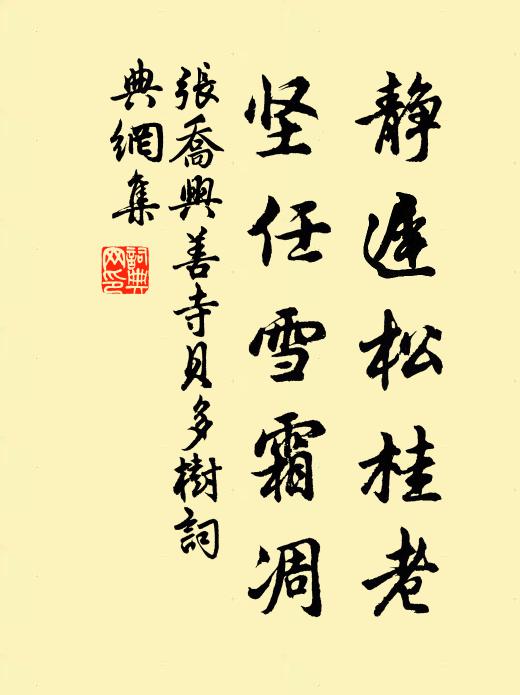 静遲松桂老
坚任雪霜凋
張喬興善寺貝多樹詞
典網集
詞典
网印